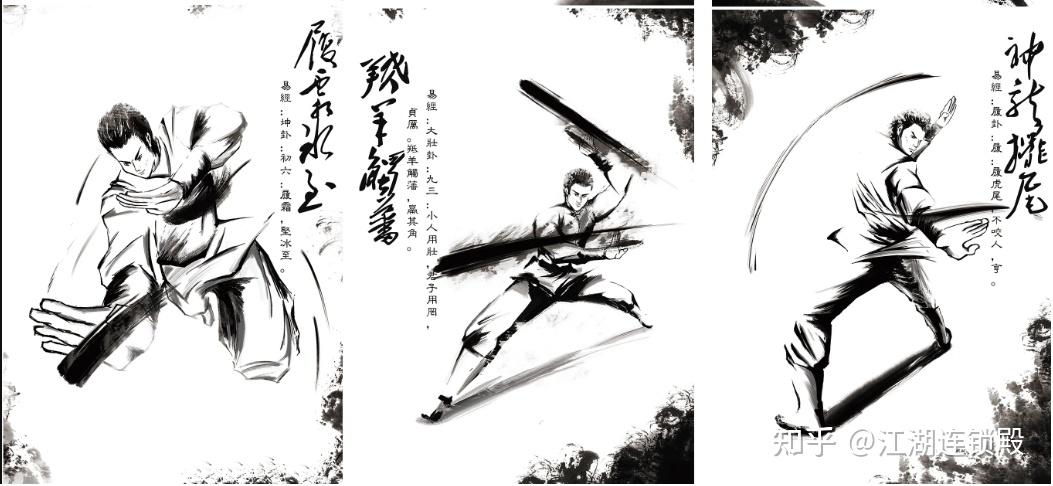 履霜冰至
易經:坤卦:初六:履霜,堅冰至。
羝羊觸藩
易經:大壯卦:九三:小人用壯,君子用罔,
貞厲。羝羊觸藩,羸其角。
神龍擺尾
易經:履卦:履:履虎尾,不咬人,亨。
知乎 @江湖连锁殿